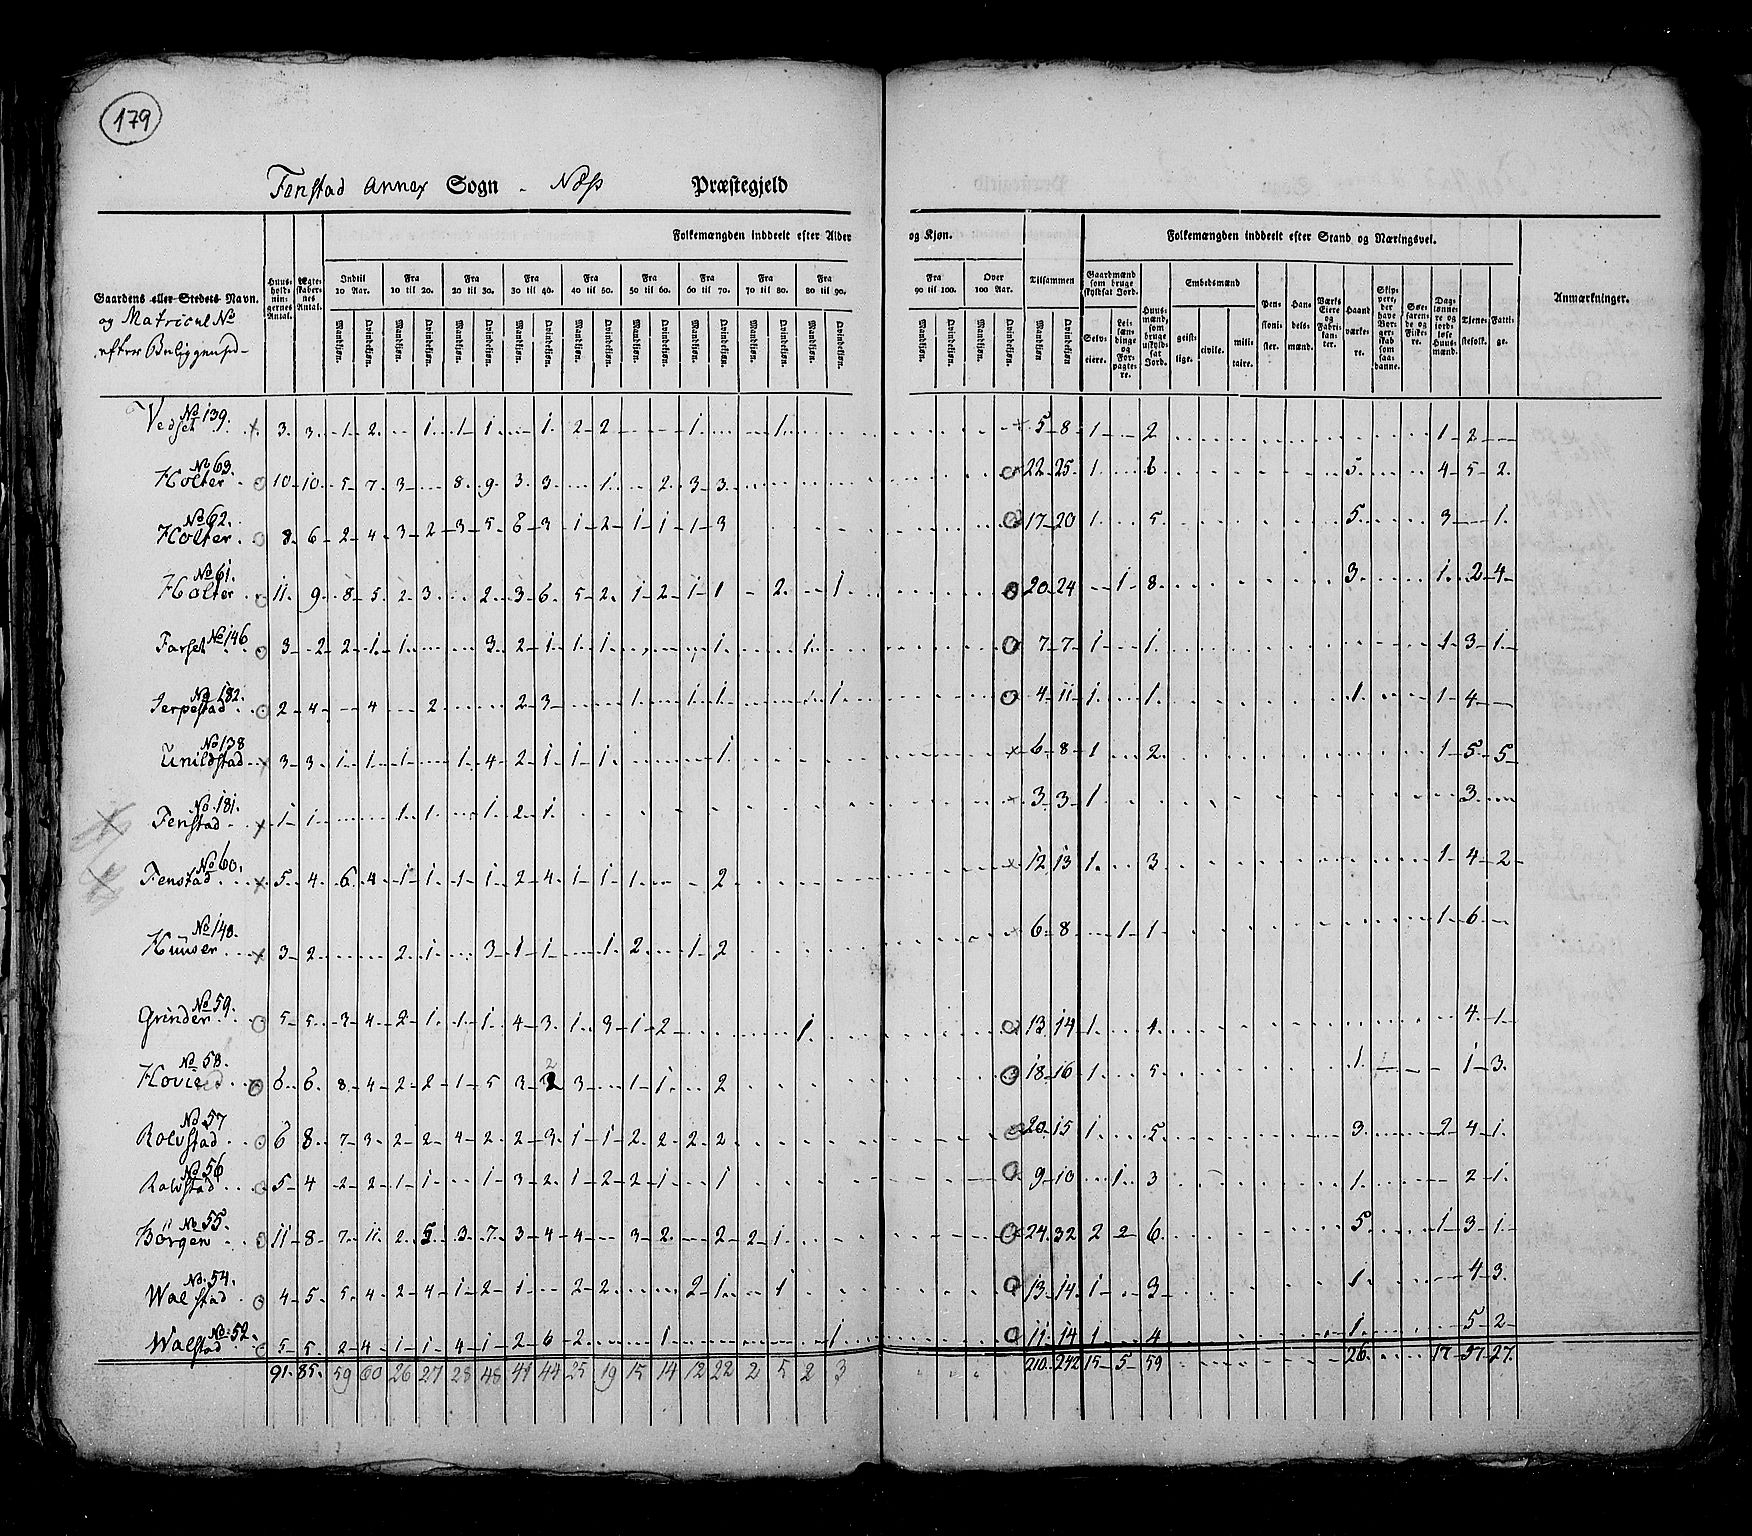 179
Fenstad Annex Sogn - Næs Præstegjeld
Folkemængden inddeelt efter Alder og Kjøn. Folkemængden inddeelt efter Stand og Næringsvei.
Gaardens eller Stedets Navn. og Matricul No efter Beliggenhed -
Huus-hold-nin-gernes Antal. Ægte-skaber-nes Antal.
Indtil 10 Aar. Fra 10 til 20. Fra 20 til 30. Fra 30 til 40. Fra 40 til 50. Fra 50 til 60. Fra 60 til 70. Fra 70 til 80. Fra 80 til 90. Fra 90 til 100. Over 100 Aar. Tilsammen
Mandkjøn. Qvindekjøn.
Gaardmænd som bruge skyldsat Jord. Selv-eiere. Lei-læn-dinge og For-pagte-re. Huus-mænd, som bruge uskyld-sat Jord. Embedsmænd geist-lige. civile. mili-taire. Pen-sioni-ster. Han-dels-mænd. Værks Eiere og Fabri-kan-ter. Haand værke-re. Skip-pere, der have Bor-ger-skab som saa-danne. Søe-faren-de og Fiske-re. Dag-lønne-re og jord-løse Huus-mænd. Tjene-stefolk. Fatti-ge. Anmærkninger.
Vedset No 139. 3. 3. 1 2 1. 1 1. 1. 2 2 1. 1. 5 8 1 2 1 2
Holter No 63. 10 10. 5 7 3 8. 9. 3. 3. 1. 2 3 3 22 25. 1. 6 5. 4 5 2.
Holter No 62. 8. 6 2 4 3 2 3 5 6 3 1 2 1 1 1 3 17 20 1. 5. 5. 3 1.
Holter No 61. 11. 9. 8 5. 2 3. 2. 3 6. 5 2. 1 2 1 1 2. 1 20 24 1 8. 3. 1. 2 4
Farset No 146 3 2 2 1. 1. 3. 2 1 1. 1. 1. 1. 7 7 1 1. 1 3 1.
Jerpestad No 182. 2 4 4 2. 2 3. 1. 1 1. 1. 1. 4 11 1. 1. 1. 1 4
Unildstad No 138 3 3. 1. 1. 1. 1. 4 2 1 1. 1. 1. 6 8 1 2. 1 5 5
Fenstad No 181. 1 1. 1. 1. 1. 2. 1. 3 3 1 3.
Fenstad No 60. 5. 4. 6. 4 1 1. 1. 1. 2 4. 1 1. 1. 2 12 13 1. 3 1 4 2
Hunser No 140. 3 2. 2. 1. 3. 1 1. 1. 2 1 2 6 8 1 1 1 6
Grinder No 59. 5 5. 3 4 2 1. 1. 1. 4 3. 1. 3 1 2 1. 13. 14 1. 4. 4. 1.
Hovie No 58. 6. 6. 8. 4 2 2 1 5 3 2 3 1 1. 2 18 16 1. 5. 1. 1 3.
Rolvstad No 57 6 8. 7 3. 2 2. 4 2. 2 3. 1 1. 2. 2. 2 2 20. 15 1. 5. 3. 2 4 1.
Rolvstad No 56 5 4 2 2. 1 1 1 3 2. 1 2 2 1. 1 9 10 1. 3 1. 2 1.
Börgen No 55. 11 8. 7. 11. 2. 5. 3. 7. 3 4 4 3 2. 2 2 1. 24. 32 2 2 6. 5. 1 3 1
Walstad No. 54. 4 5. 5. 4. 2 4 1. 2 1. 2 2. 2 1. 1 13. 14. 1 3 1. 4 3.
Walstad No: 52. 5. 5. 2 4. 1. 1. 4 1. 2 6 2. 1 1. 11. 14 1. 4 1. 5. 2
91. 85. 59 60 26 27 28 48 41 44 25 19 15 14 12 22 2 5 2 3 210. 242 15 5 59 26. 17 57 27.